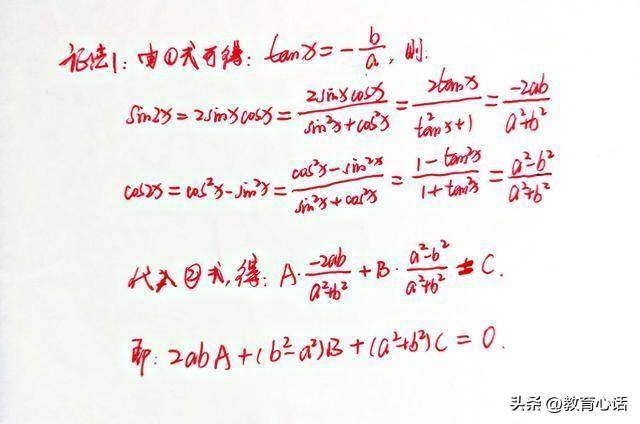 证法1:由①式可得:tanx=-b/a,则.
sin2x=2sinxcosx=2sinxcosx/(sin²x+cos²x)=2tanx/(tan²x+1)=-2ab/(a²+b²)
cos2x=cos²x-sin²x=(cos²x-sin²x)/(sin²x+cos²x)=(1-tan²x)/(1+tan²x)=(a²-b²)/(a²+b²)
代入②式,得:A·(-2ab)/(a²+b²)+B·(a²-b²)/(a²+b²)=C.
即:2abA+(b²-a²)B+(a²+b²)C=0.
头条 @教育心话